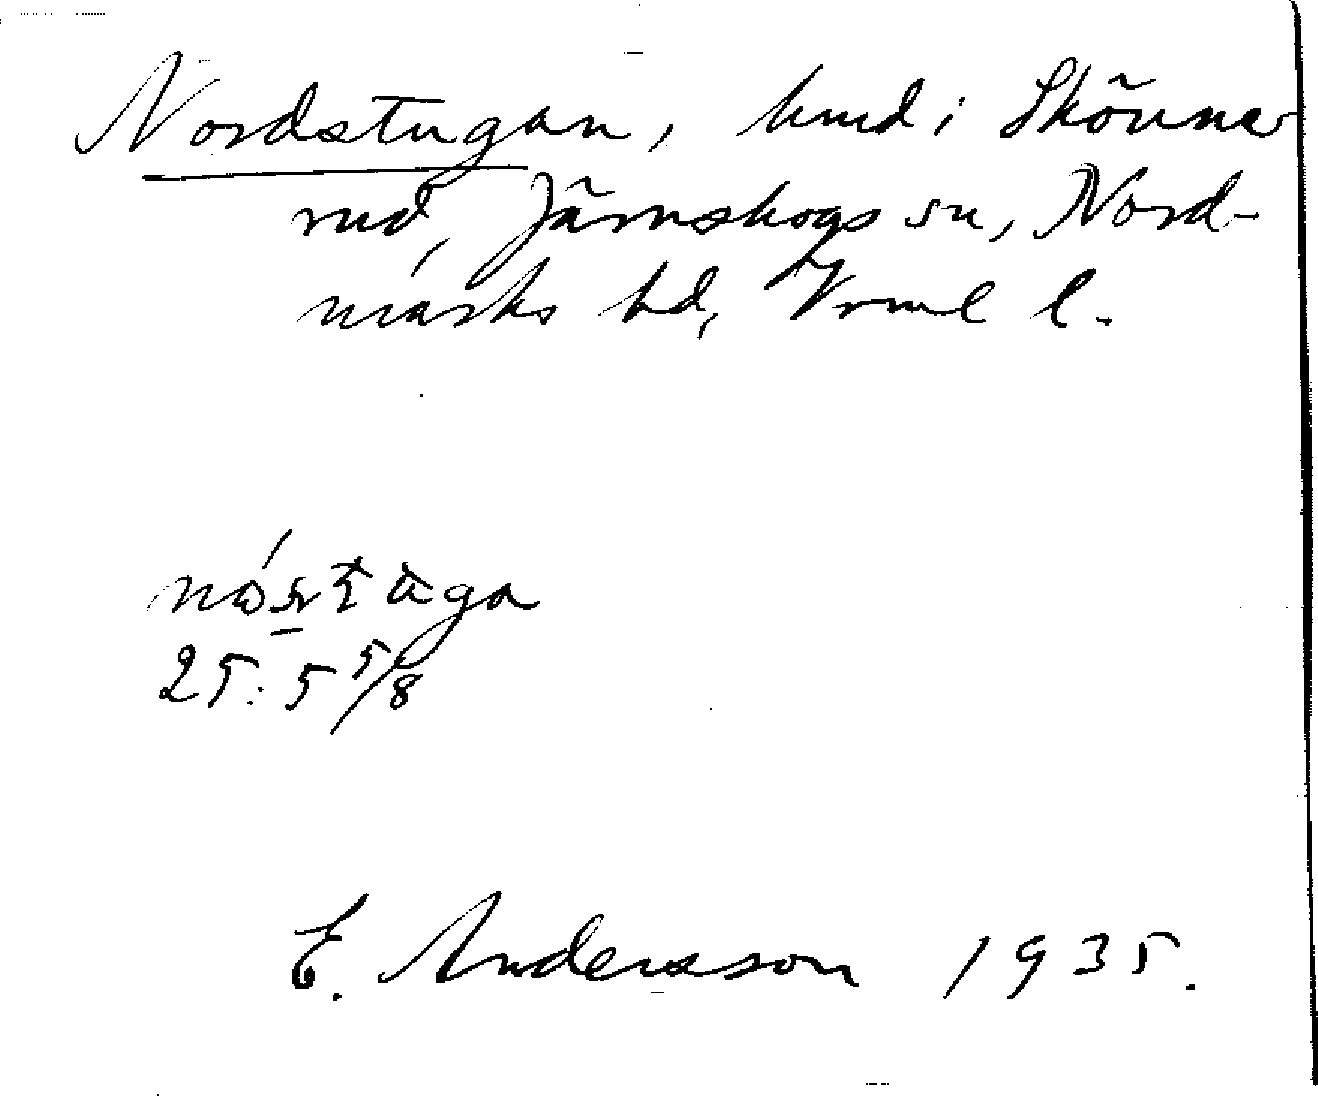 Nordstugan, hmd i Skönne
rud, Järnskogs sn, Nord-
marks hd, Vrml l.
25: 5 5/8
E. Andersson 1935.